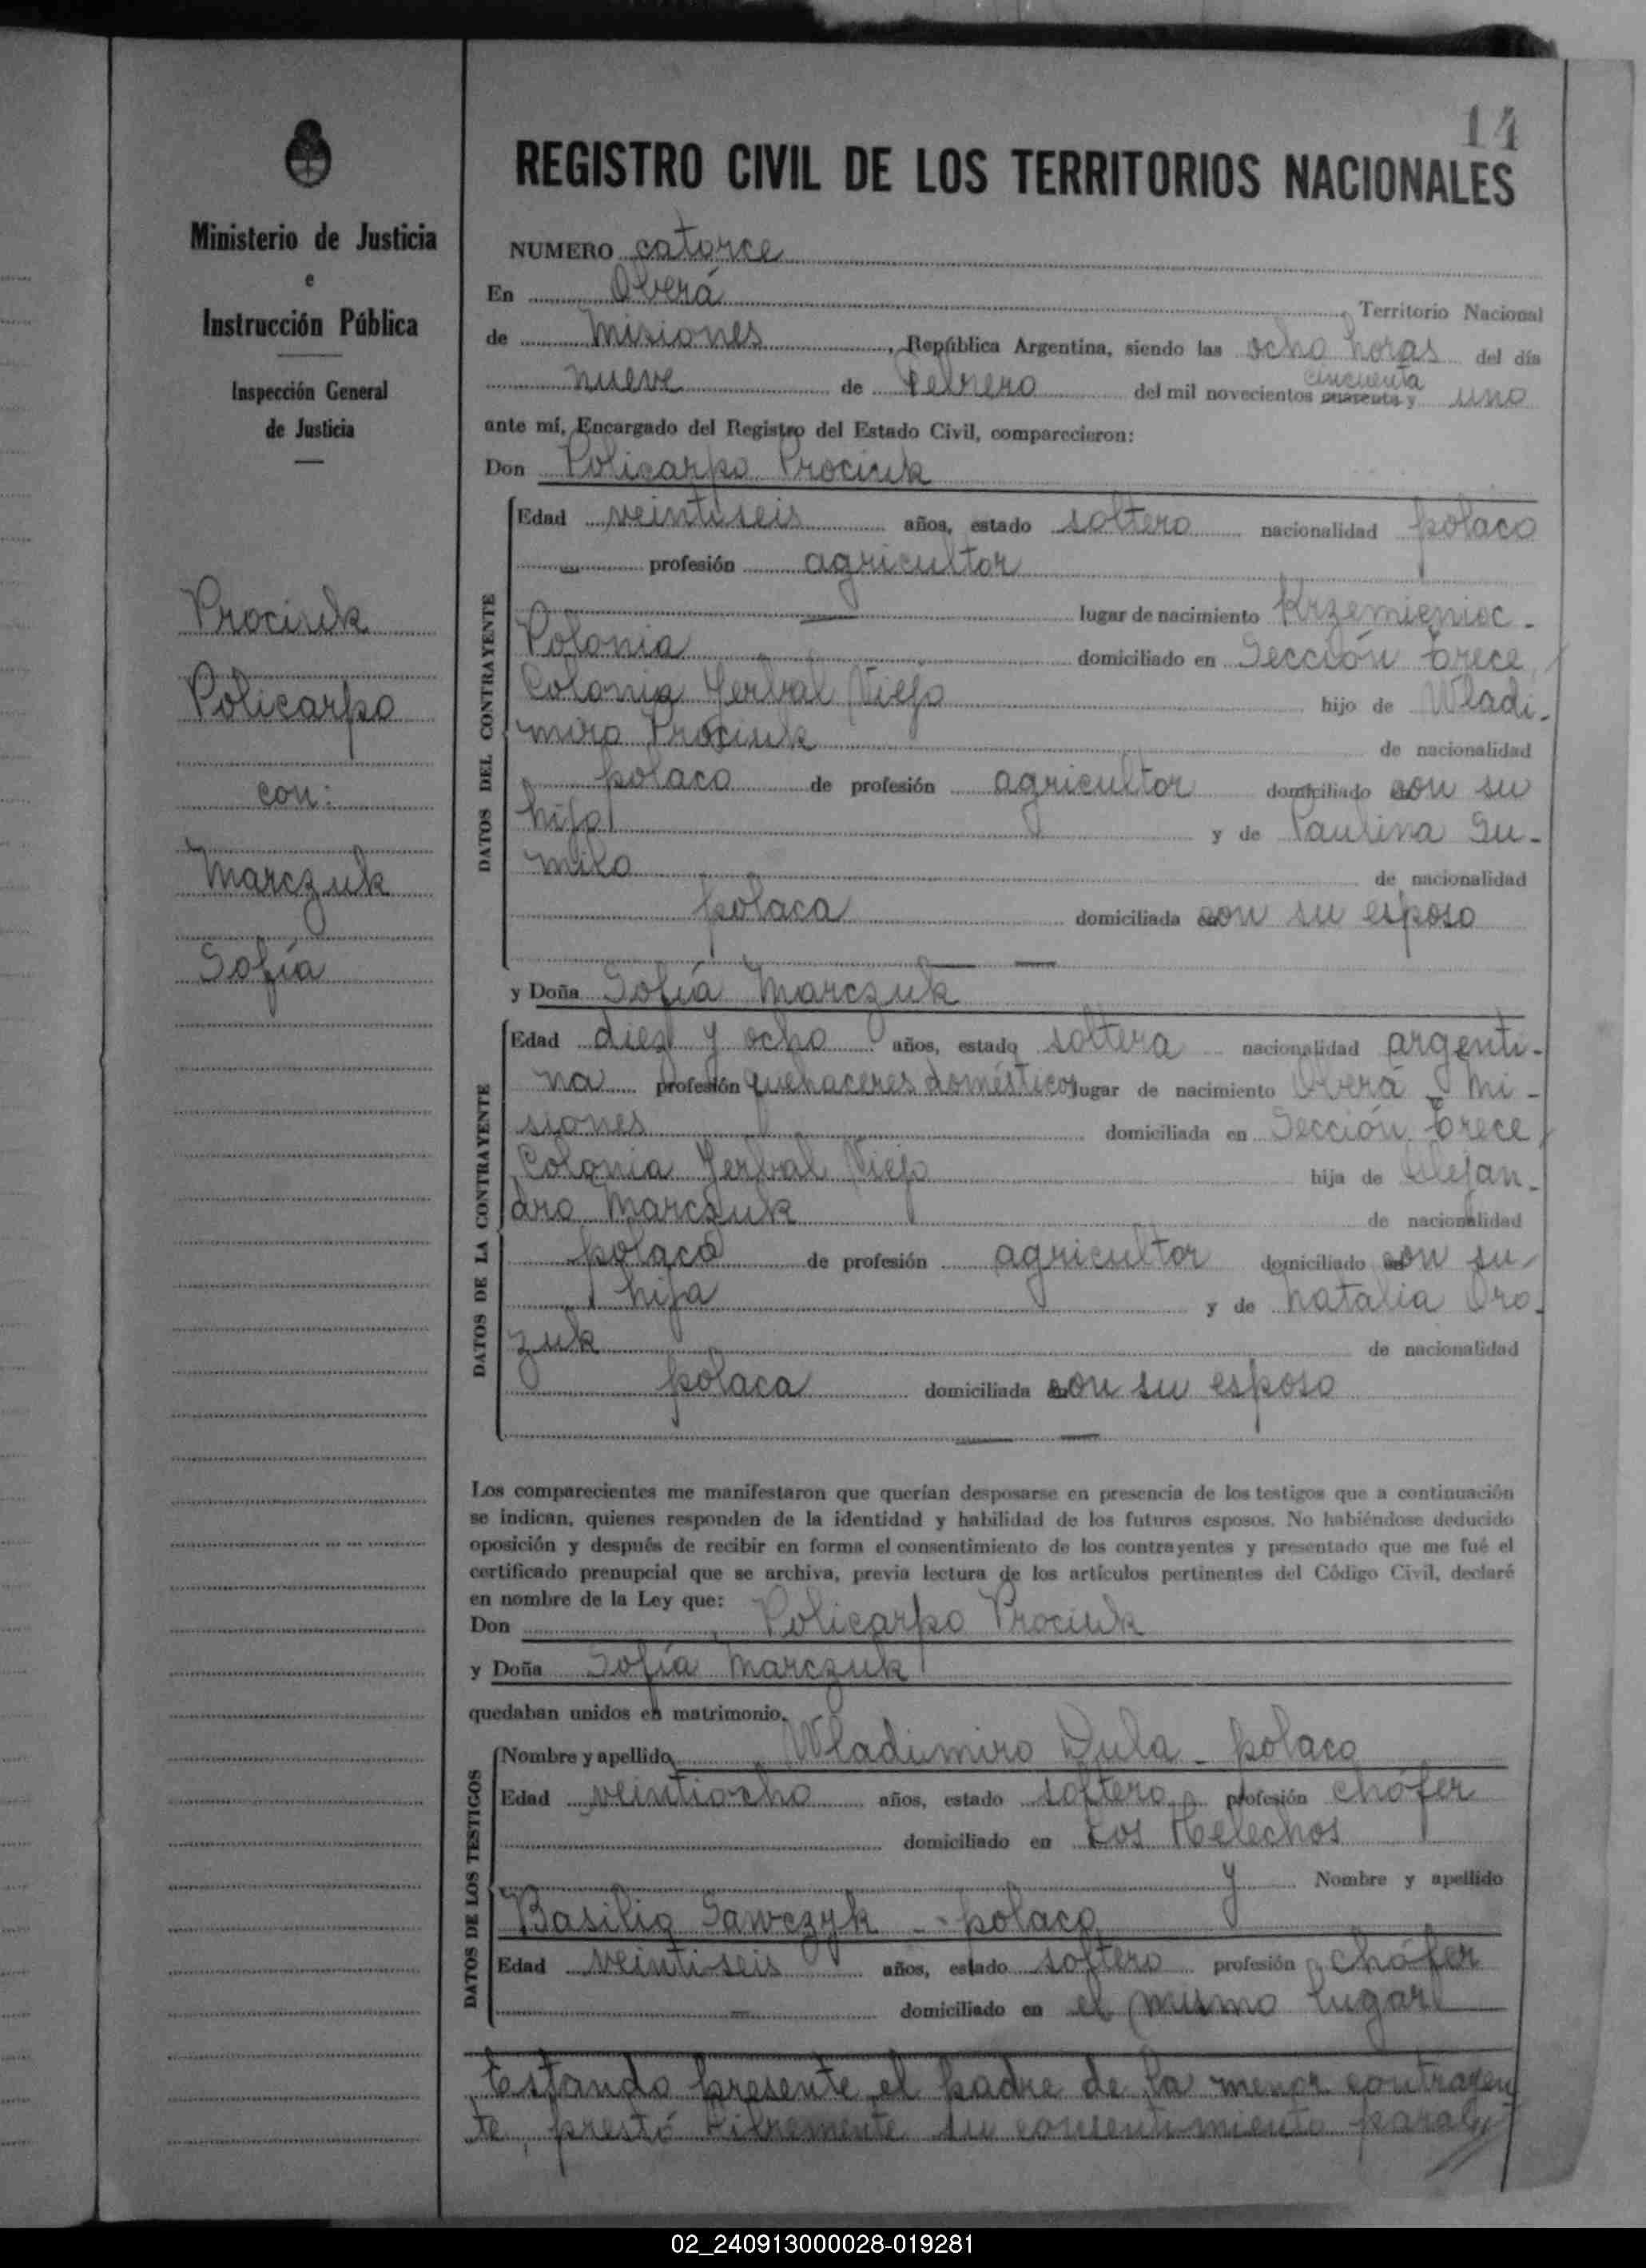 14
Ministerio de Justicia
e
Instrucción Pública
Inspección General
de Justicia
Prociuk
Policarpo
con:
Marczuk
Sofía
REGISTRO CIVIL DE LOS TERRITORIOS NACIONALES
NUMERO catorce
En Oberá Territorio Nacional
de Misiones, República Argentina, siendo las ocho horas del día
nueve de Febrero del mil novecientos cuarenta y cincuenta uno
ante mí, Encargado del Registro del Estado Civil, comparecieron:
Don Policarpo Prociuk
DATOS DEL CONTRAYENTE
Edad veintiseis años, estado soltero nacionalidad polaco
profesión agricultor
lugar de nacimiento Krzemienioc -
Polonia domiciliado en Sección trece,
Colonia Yerbal Viejo hijo de Wladi-
miro Prociuk de nacionalidad
polaco de profesión agricultor domiciliado con su
hijo y de Paulina Su-
mila de nacionalidad
polaca domiciliada con su esposo
y Doña Sofía Marczuk
DATOS DE LA CONTRAYENTE
Edad diez y ocho años, estado soltera nacionalidad argenti-
na profesión quehaceres domésticos lugar de nacimiento Oberá - Mi-
siones domiciliada en Sección trece,
Colonia Yerbal Viejo hija de Alejan-
dro Marczuk de nacionalidad
polaco de profesión agricultor domiciliado con su
hija y de Natalia Oro-
zuk de nacionalidad
polaca domiciliada con su esposo
Los comparecientes me manifestaron que querían desposarse en presencia de los testigos que a continuación
se indican, quienes responden de la identidad y habilidad de los futuros esposos. No habiéndose deducido
oposición y después de recibir en forma el consentimiento de los contrayentes y presentado que me fué el
certificado prenupcial que se archiva, previa lectura de los artículos pertinentes del Código Civil, declaré
en nombre de la Ley que:
Don Policarpo Prociuk
y Doña Sofía Marczuk
quedaban unidos en matrimonio.
DATOS DE LOS TESTIGOS
Nombre y apellido Wladimiro Dula - polaco
Edad veintiocho años, estado soltero profesión chófer
domiciliado en Los Helechos
y Nombre y apellido
Basilio Sawczyk - polaco
Edad veintiseis años, estado soltero profesión chófer
domiciliado en el mismo lugar
Estando presente el padre de la menor contrayen
te, prestó libremente su consentimiento para el
02_240913000028-019281